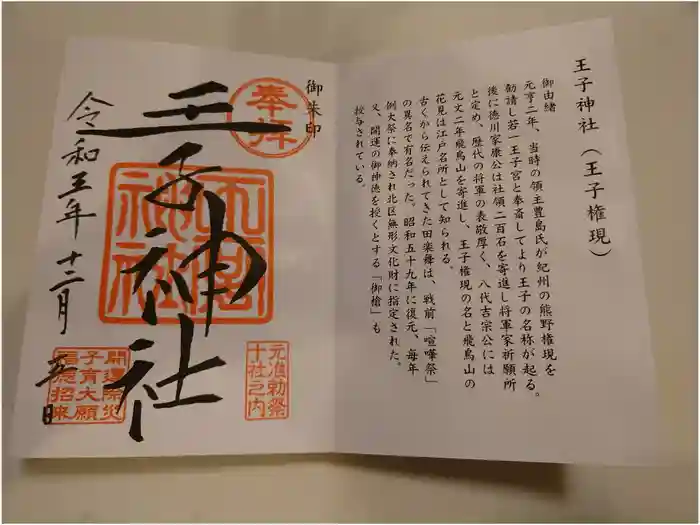 王子神社（王子権現）
御由緒
元亨二年、当時の領主豊島氏が紀州の熊野権現を
勧請し若一王子宮と奉斎してより王子の名称が起る。
後に徳川家康公は社領二百石を寄進し将軍家祈願所
と定め、歴代の将軍の表敬厚く、八代吉宗公には
元文二年飛鳥山を寄進し、王子権現の名と飛鳥山の
花見は江戸名所として知られる。
古くから伝えられてきた田楽舞は、戦前「喧嘩祭」
の異名で有名だった。昭和五十九年に復元、毎年
例大祭に奉納され北区無形文化財に指定された。
又、開運の御神徳を授くとする「御槍」も
授与されている。
御朱印
奉拝
王子神社
王子神社
元准勅祭
十社之内
令和五年十二月五日
開運除災
子育大願
福徳招来